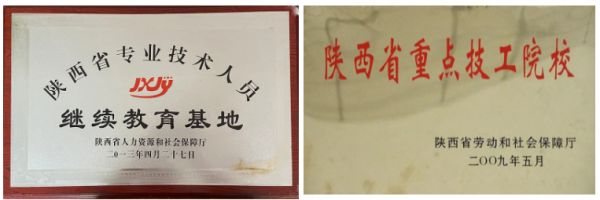 陕西省专业技术人员
JXJY
继续教育基地
陕西省人力资源和社会保障厅
二〇一三年四月二十七日
陕西省重点技工院校
陕西省劳动和社会保障厅
二〇〇九年五月